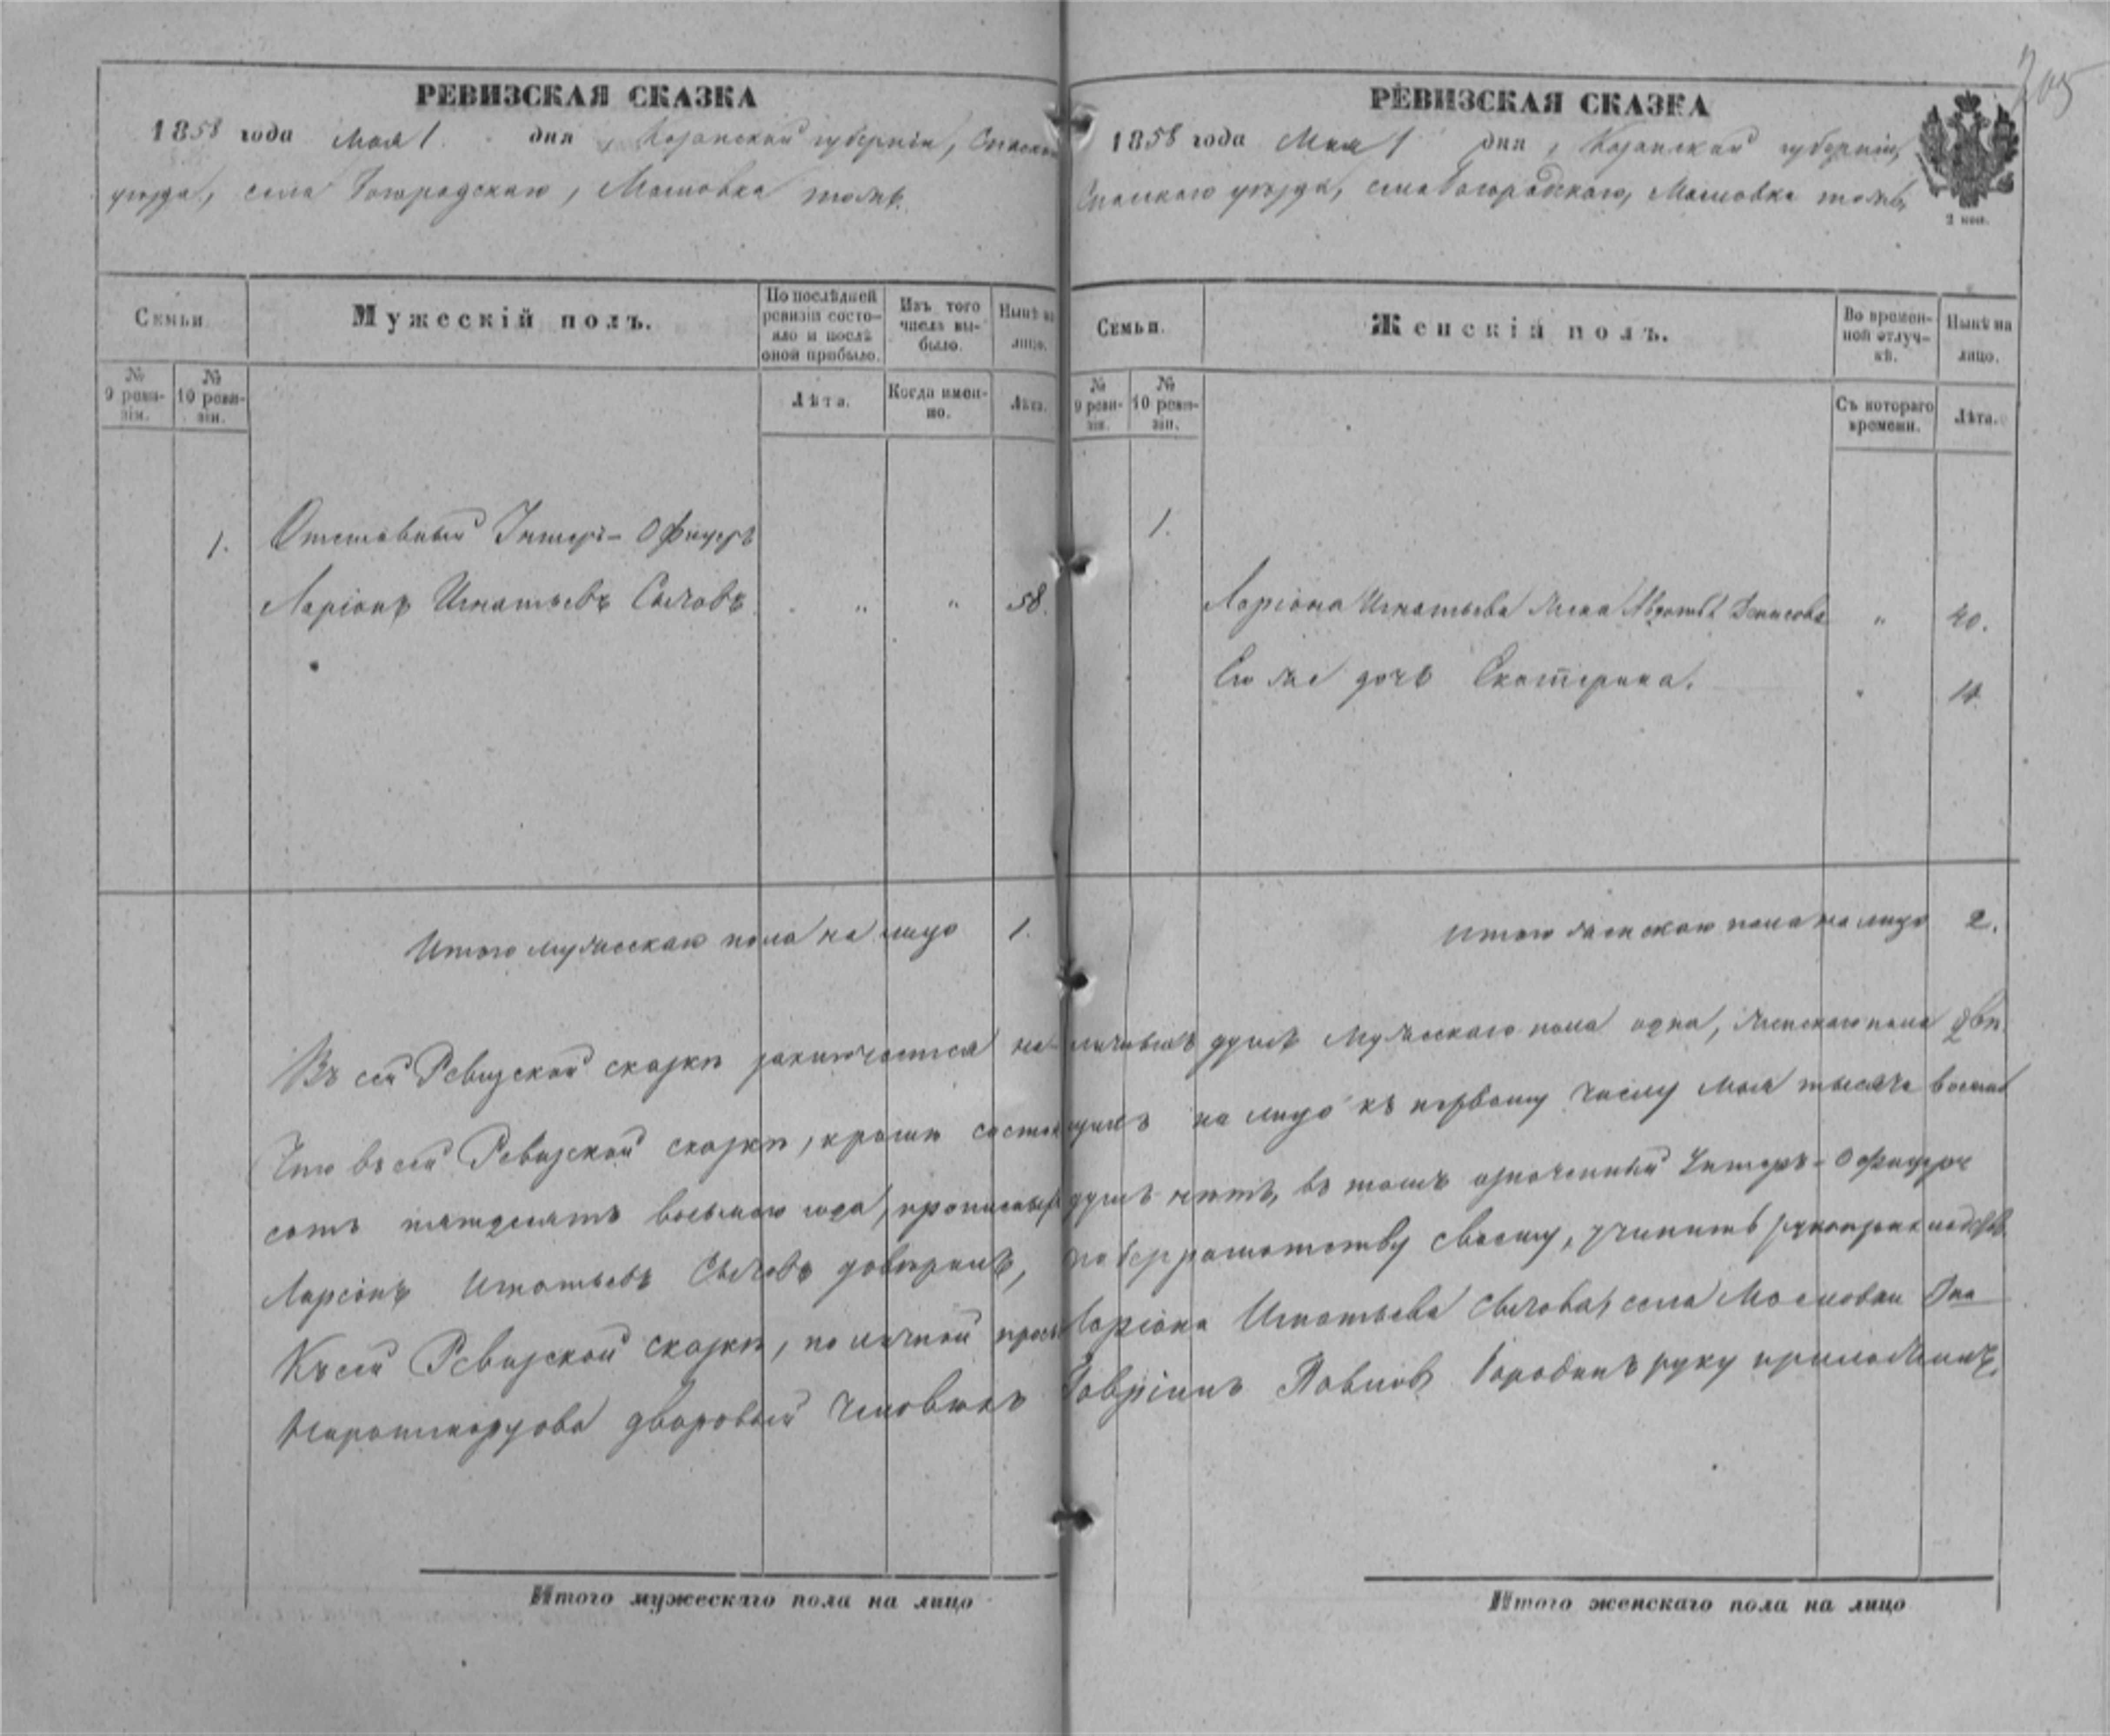 РЕВИЗСКАЯ СКАЗКА
1858 года Мая 1. дня, Казанской губерніи, Спаскаго
уезда, села Богородскаго, Масловка тожъ.
Семьи
Мужескій полъ.
По послѣдней ревизіи состояло и послѣ оной прибыло.
Изъ того числа выбыло.
Нынѣ на лицо.
№ 9 ревизіи.
№ 10 ревизіи.
Лѣта.
Когда именно.
Лѣта.
1. Отставный Унтеръ-Офицеръ
Ларіонъ Игнатьевъ Сычовъ " " 58.
Итого мужескаго пола на лицо 1.
205
РЕВИЗСКАЯ СКАЗКА
1858 года Мая 1 дня, Казанской губерніи,
Спаскаго уезда, села Богородскаго, Масловка тожъ,
2 коп.
Семьи.
Женскій полъ.
Во временной отлучкѣ.
Нынѣ на лицо.
№ 9 ревизіи.
№ 10 ревизіи.
Съ котораго времени.
Лѣта.
1.
Ларіона Игнатьева жена Авдотья Денисова " 40.
Его же дочь Екатерина. " 14
Итого женскаго пола на лицо 2.
Въ сей Ревизской сказкѣ заключается наличныхъ душъ мужескаго пола одна, женскаго пола двѣ.
Что въ сей Ревизской сказкѣ, кромѣ состоящихъ на лицо къ первому числу Мая тысяча восемь
сотъ пятдесятъ восьмаго года, прописныхъ душъ нѣтъ, въ томъ означенный Унтеръ-Офицеръ
Ларіонъ Игнатьевъ Сычовъ довѣрилъ, по безграмотству своему, учинить рукоприкладство.
Къ сей Ревизской сказкѣ, по личной прозьбѣ Ларіона Игнатьева Сычова, села Масловки
дворовый человѣкъ Гавріилъ Павловъ Бородинъ руку приложилъ.
Итого мужескаго пола на лицо
Итого женскаго пола на лицо